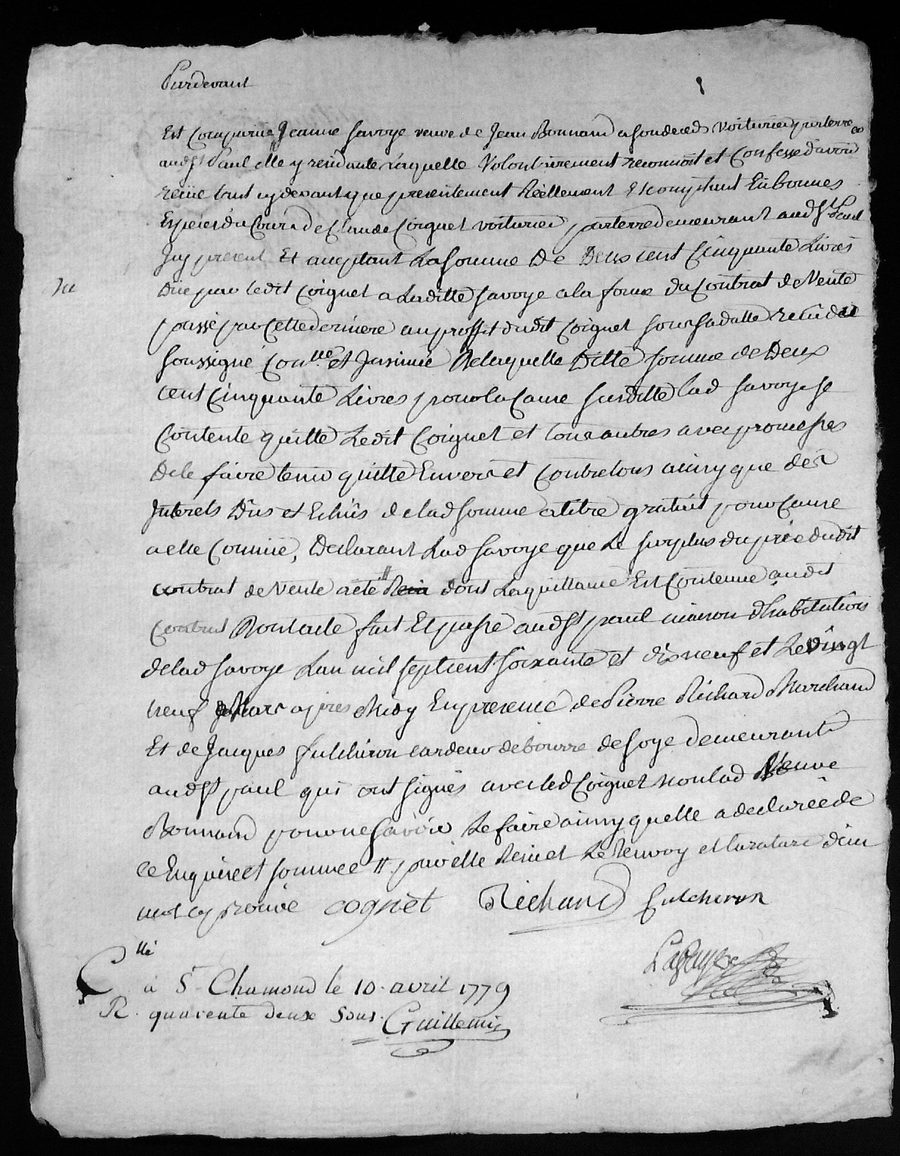 Pardevant
Est Comparüe Jeanne Savoye veuve de Jean Bonnard voiturier par terre
audt St Paul elle y residante Laquelle Volontairement reconnoit et Confesse d'avoir
reçüe tout cydevant que presentement Réellement Et comptant En bonnes
Especes du Cours de Claude Coignet voiturier par terre demeurant audt St Paul
Icy present Et acceptant La somme De Deux cent Cinquante Livres
Düe par ledit Coignet a Laditte Savoye a la forme du Contrat de Vente
passé par Cette derniere au proffit dudit Coignet sous sa datte reçu du
soussigné Con.lle et Insinüé De laquelle Ditte somme de Deux
cent Cinquante Livres pour la Cause susditte lad Savoye se
Contente quitte Ledit Coignet et tous autres avec promesses
De le faire tenir quitte Envers et Contre tous ainsy que des
Interets Dus et Echüs de lad somme a titre gratuit pour Cause
a elle Connüe, Declarant Lad Savoye que le surplus du prix dudit
contrat de Vente a eté // dont La quittance Est Contenüe audit
Contrat Dont acte fait Et passé audt St paul maison d'habitation
de lad Savoye L'an mil sept cent soixante et dix neuf et Le Vingt
neuf Mars apres Midy En presence de Pierre Richard Marchand
Et de Jacques fulchiron cardeur de bourre de soye demeurants
audt St paul qui ont signés avec led Coignet non lad Veuve
Bonnard pour ne savoir Le faire ainsy quelle a declarée de
ce Enquise et sommée // pour elle Le renvoy et la rature d'un
mot approuvé cognet Richard fulchiron
C.llé
à St Chamond le 10 avril 1779
R. quarente deux sous. Guillemin